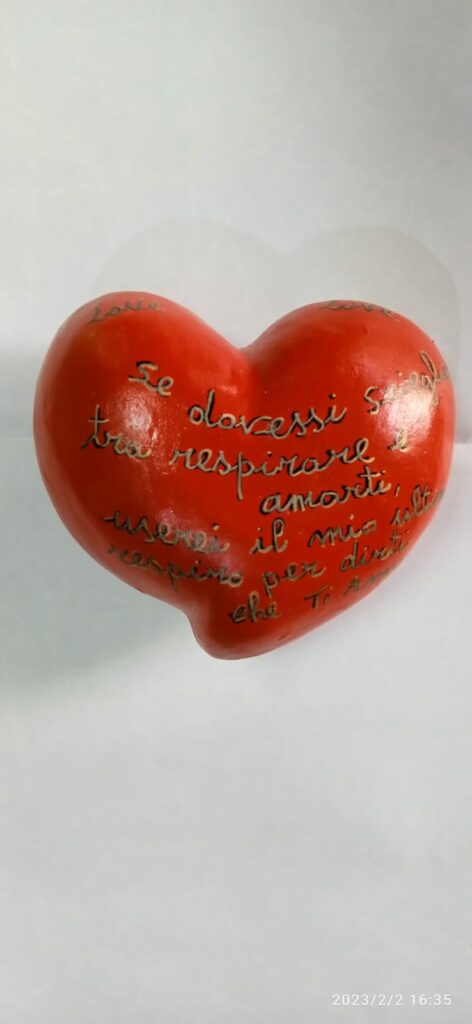 Love Love
Se dovessi
tra respirare e
amarti,
userei il mio
respiro per dirti
che Ti
2023/2/2 16:35